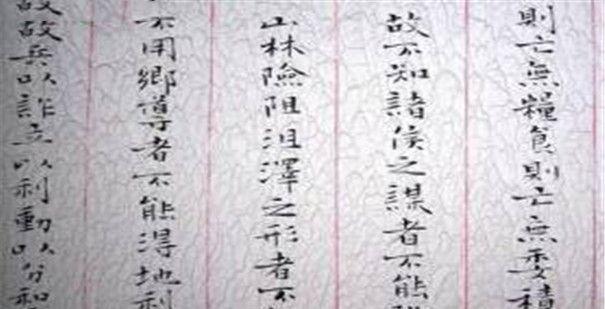 則亡無糧食則亡無委積
故不知諸侯之謀者不能
山林險阻沮澤之形者不
不用鄉導者不能得地利
故故兵以詐立以利動以分和